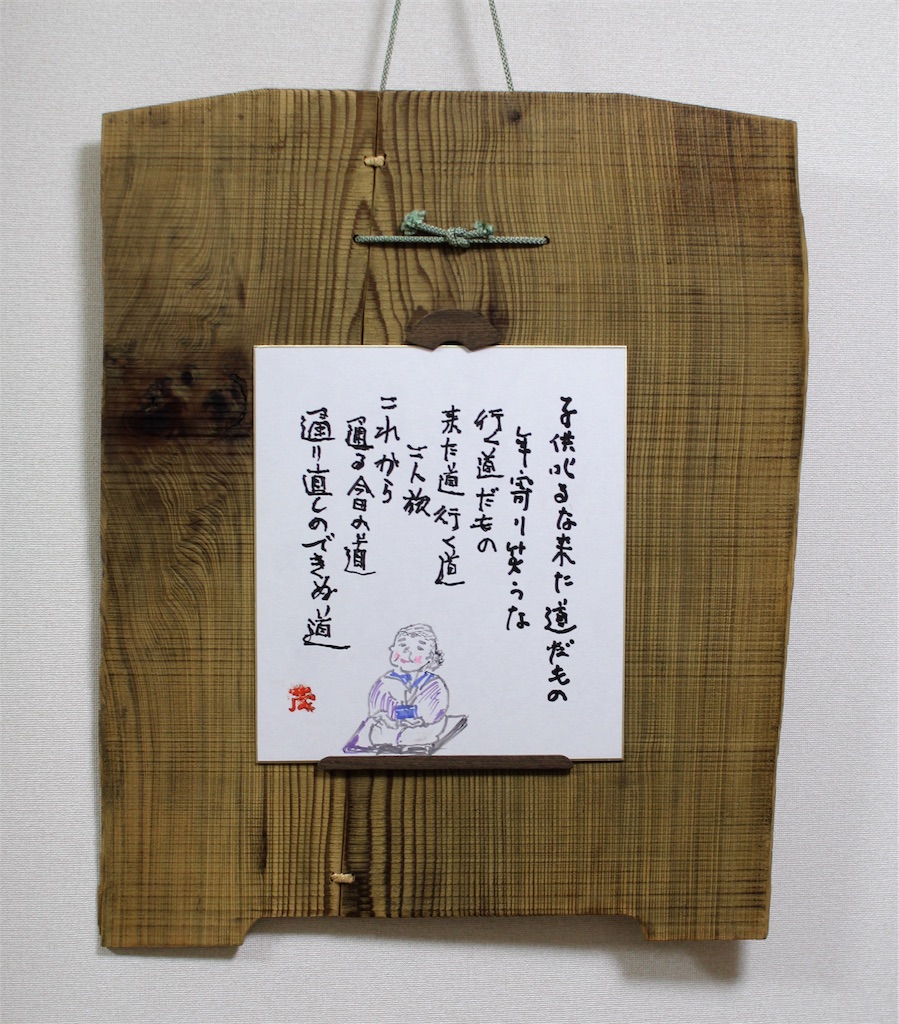 子供叱るな来た道だもの
年寄り笑うな
行く道だもの
来た道行く道
二人旅
これから
通る今日の道
通り直しのできぬ道
茂